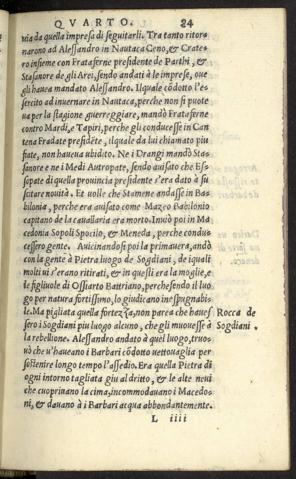 QVARTO. 84
nia da quella impresa di seguitarli. Tra tanto ritor=
narono ad Alessandro in Nautaca Ceno, & Crate=
ro insieme con Frataferne presidente de Parthi, &
Stasanore de gli Arei, sendo andati à le imprese, oue
gli haueua mandato Alessandro. Ilquale cōdotto l'es=
sercito ad inuernare in Nautaca, perche non si puote
ua per la stagione guerreggiare, mandò Frataferne
contro Mardi, e Tapiri, perche gli conducesse in Can
tena Fradate presidēte, ilquale da lui chiamato piu
fiate, non haueua ubidito. Ne i Drangi mandò Sta=
sanore e ne i Medi Autropate, sendo auisato che Ess=
sapate di quella prouincia presidente s'era dato à su
scitare nouità. Et uolle che Stamene andasse in Ba=
bilonia, perche era auisato come Mazeo Babilonio
capitano de la cauallaria era morto. Inuiò poi in Ma
cedonia Sopoli Spocilo, & Meneda, perche condu=
cessero gente. Auicinandosi poi la primauera, andò
con la gente à Pietra luogo de Sogdiani, de iquali
molti ui s'erano ritirati, & in quesli era la moglie, e
le figliuole di Ossiarto Battriano, perche sendo il luo
go per natura fortissimo, lo giudicano inespugnabi=
le. Ma pigliata quella fortezza, non parea che haues
sero i Sogdiani piu luogo alcuno, che gli muouesse à
la rebellione. Alessandro andato à quel luogo, truo=
uò che u'haueano i Barbari cōdotto uettouaglia per
sostenere longo tempo l'assedio. Era quella Pietra di
ogni intorno tagliata giu al dritto, & le alte neui
che cuopriuano la cima, incommodauano i Macedo=
ni, & dauano à i Barbari acqua abbondantemente.
Rocca de
Sogdiani.
L iiii